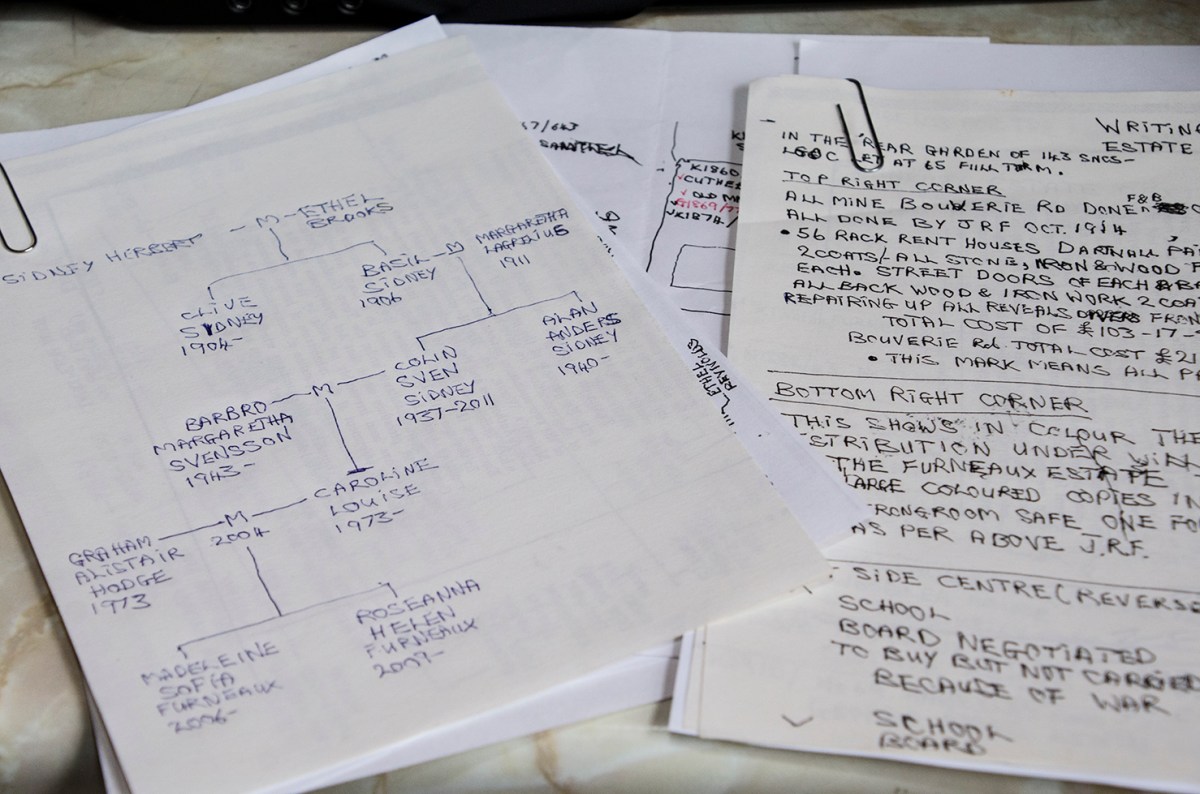 SIDNEY HERBERT
M
ETHEL
BROOKS
CLIVE
SYDNEY
1904-
BASIL
SIDNEY
1906
M
MARGARETHA
LAGRELIUS
1911
COLIN
SVEN
SIDNEY
1937-2011
ALAN
ANDERS
SIDNEY
1940-
BARBRO
MARGARETHA
SVENSSON
1943-
M
CAROLINE
LOUISE
1973-
GRAHAM
ALISTAIR
HODGE
1973
M
2004
MADELEINE
SOFIA
FURNEAUX
2006-
ROSEANNA
HELEN
FURNEAUX
2007-
ETHEL
REYNOLDS
K1860
CUTHE
OLD M
K1874/
WRITIN
ESTATE
IN THE REAR GARDEN OF 143 SNGS-
AT 65 FULL TERM.
TOP RIGHT CORNER
F&B
ALL MINE BOUVERIE RD DONE
ALL DONE BY JRF OCT. 1914
• 56 RACK RENT HOUSES DARTNALL PA
2 COATS/-ALL STONE, IRON & WOOD F
EACH. STREET DOORS OF EACH & BA
ALL BACK WOOD & IRON WORK 2 COA
REPAIRING UP ALL REVEALS FRON
TOTAL COST OF £103-17-
BOUVERIE Rd. TOTAL COST £21
• THIS MARK MEANS ALL PA
BOTTOM RIGHT CORNER
THIS SHOWS IN COLOUR THE
STRIBUTION UNDER WIL
THE FURNEAUX ESTATE
LARGE COLOURED COPIES IN
RONGROOM SAFE ONE FO
AS PER ABOVE J.R.F.
SIDE CENTRE (REVERS
SCHOOL
BOARD NEGOTIATED
TO BUY BUT NOT CARRIED
BECAUSE OF WAR
SCHOOL
BOARD